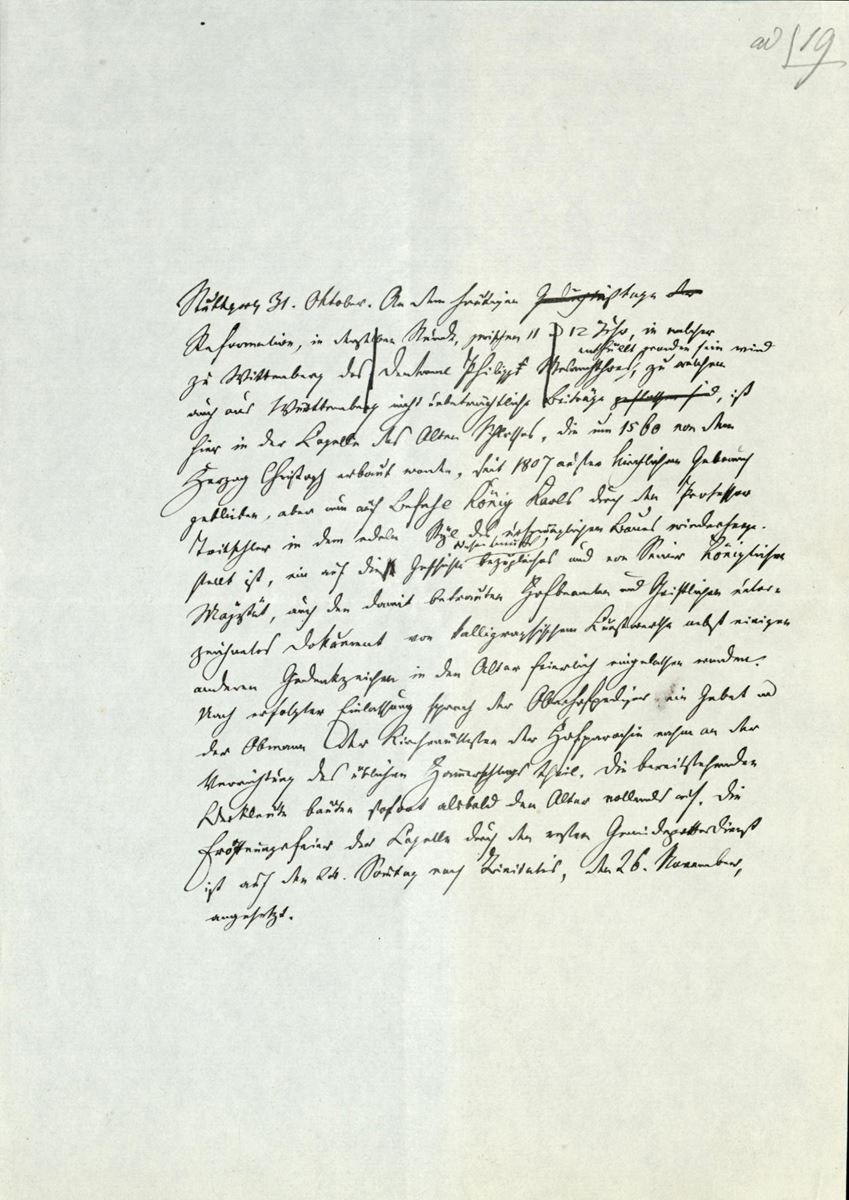 ad 19
Stuttgart 31. Oktober. An dem heutigen Gedächtnißtage der
Reformation, in derselben Stunde, zwischen 11 & 12 Uhr, in welcher
enthüllt worden sein wird
zu Wittenberg das Denkmal Philipp Melanchthons, zu welchem
auch aus Württemberg nicht unbeträchtliche Beiträge geflossen sind, ist
hier in der Kapelle des Alten Schlosses, die um 1560 von dem
Herzog Christoph erbaut worden, seit 1807 außer kirchlichem Gebrauch
geblieben, aber nun auf Befehl König Karls durch den Professor
Tritschler in dem edeln Styl des ursprünglichen Baues wiederherge-
stellt ist, ein auf diese Geschichte bezügliches und von Seiner Königlichen
Majestät, auch den damit betrauten Hofbeamten und Geistlichen unter-
zeichnetes Dokument von kalligraphischem Kunstwerthe nebst einigen
anderen Gedenkzeichen in den Altar feierlich eingelassen worden.
Nach erfolgter Einlassung sprach der Oberhofprediger ein Gebet und
der Obmann der Kirchenältesten der Hofparochie nahm an der
Verrichtung des üblichen Hammerschlags theil. Die bereitstehenden
Werkleute bauten sofort alsbald den Altar vollends auf. Die
Eröffnungsfeier der Kapelle durch den ersten Gemeindegottesdienst
ist auf den 24. Sonntag nach Trinitatis, den 26. November,
angesetzt.